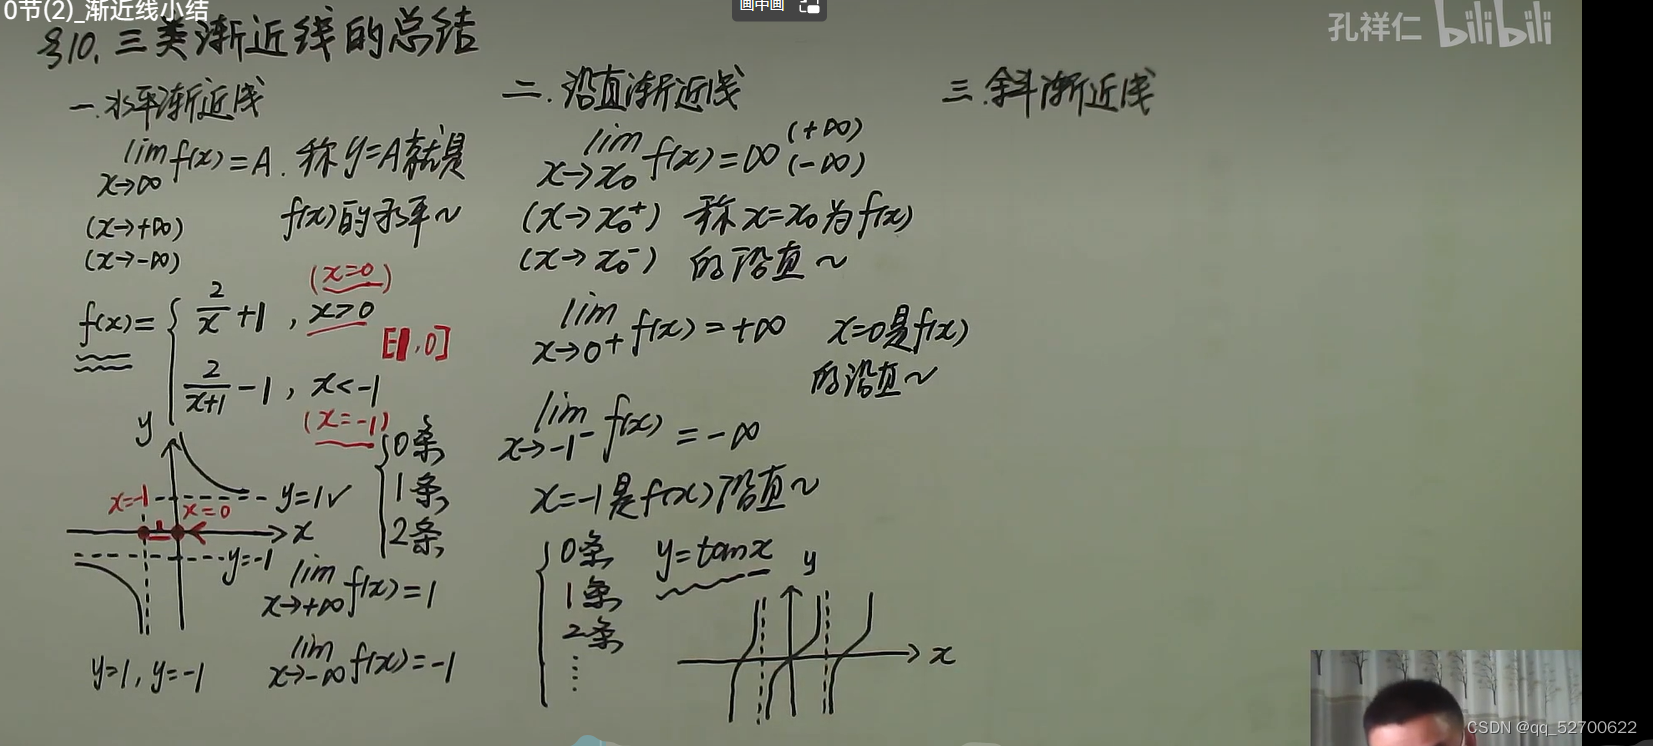 0节(2)_渐近线小结
画中画
孔祥仁 bilibili
§10. 三类渐近线的总结
一.水平渐近线
lim f(x)=A. 称y=A就是
x→∞
(x→+∞) f(x)的水平~
(x→-∞)
(x=0)
f(x)= { 2/x +1 , x>0
[-1,0]
2/(x+1) -1 , x<-1
(x=-1)
0条
1条
2条
y
x=-1
x=0
y=1√
x
y=-1
lim f(x)=1
x→+∞
lim f(x)=-1
x→-∞
y=1, y=-1
二.沿直渐近线
lim f(x)=∞ (+∞)
x→x₀ (-∞)
(x→x₀⁺) 称x=x₀为f(x)
(x→x₀⁻) 的沿直~
lim f(x)=+∞ x=0是f(x)
x→0⁺ 的沿直~
lim f(x)=-∞
x→-1⁻
x=-1是f(x)沿直~
0条
1条
2条
⋮
y=tanx
y
x
三.斜渐近线
CSDN @qq_52700622